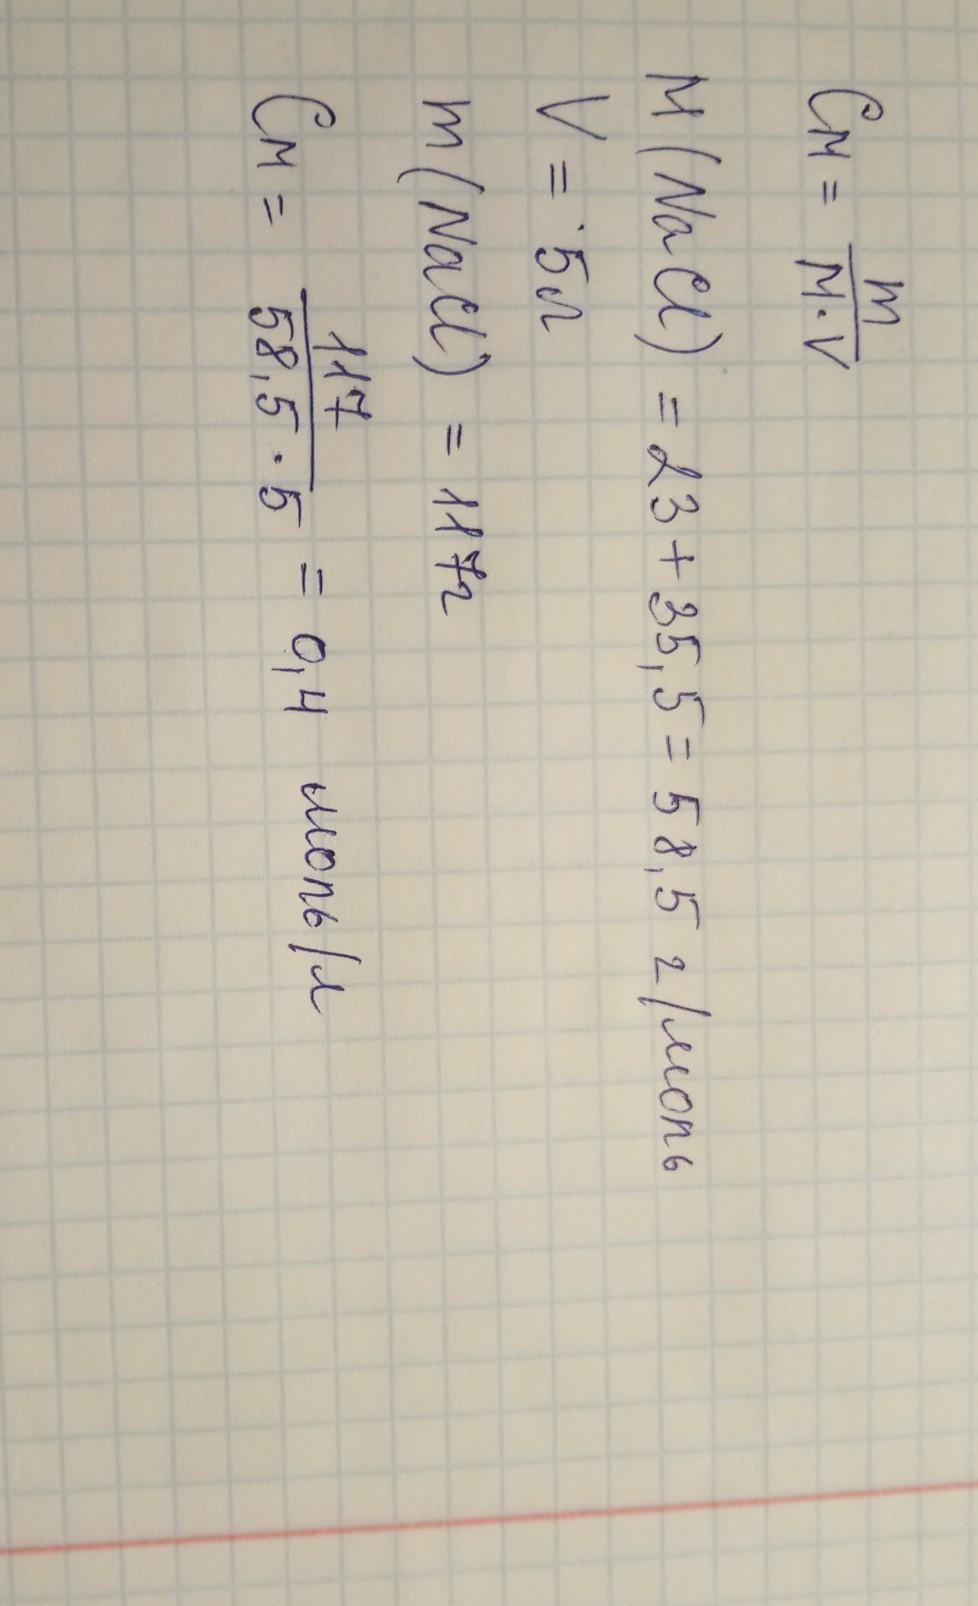 См = m / M·V
M(NaCl) = 23 + 35,5 = 58,5 г/моль
V = 5л
m(NaCl) = 117г
См = 117 / 58,5 · 5 = 0,4 моль/л